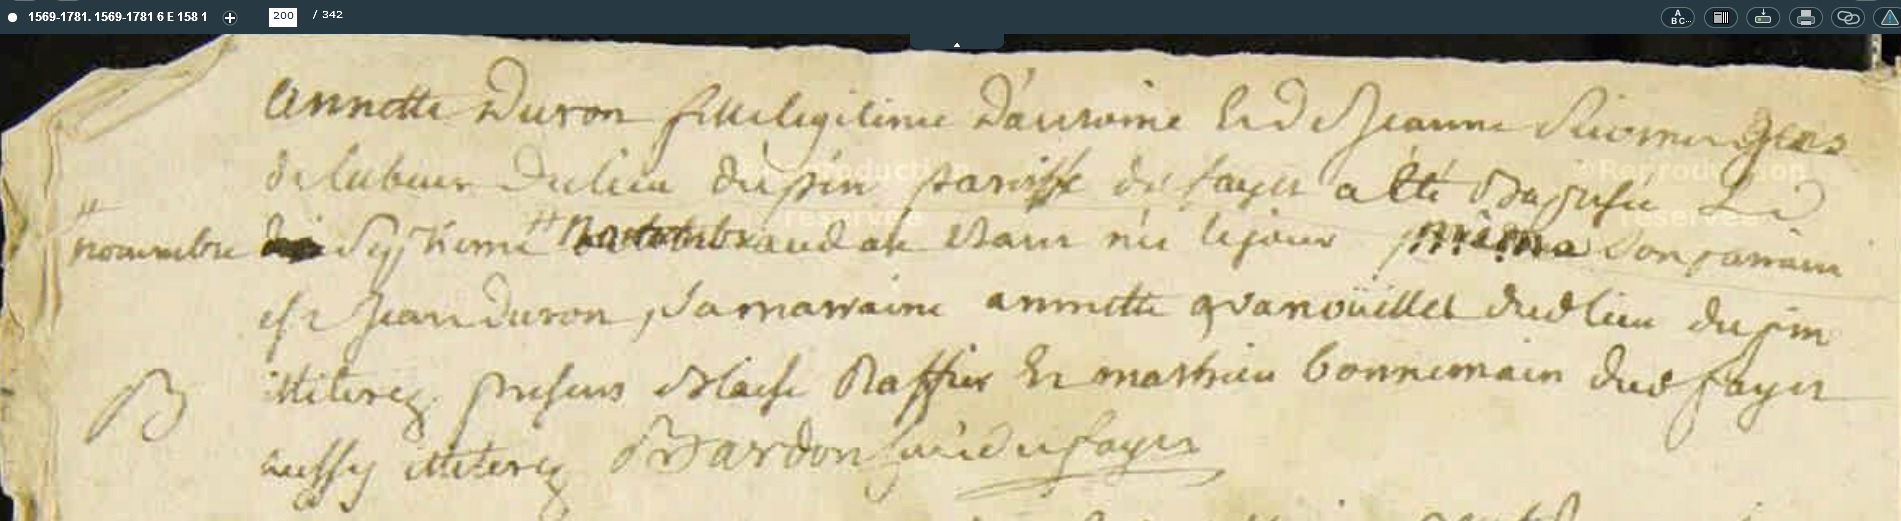 1569-1781. 1569-1781 6 E 158 1
200 / 342
A BC...
Annette Duron fille legitime D'antoine Et de Jeanne gens
de labeur du lieu du pin paroisse du fayet a eté Baptisée Le
novembre septieme aud an etant née le jour son parrain
est Jean Duron, sa marraine annette dud lieu du pin
illiterez presens Blaise Raffier Et mathieu bonnemain dud fayet
aussy illiterez Bardon curé du fayet
B
© Reproduction réservée
© Reproduction réservée